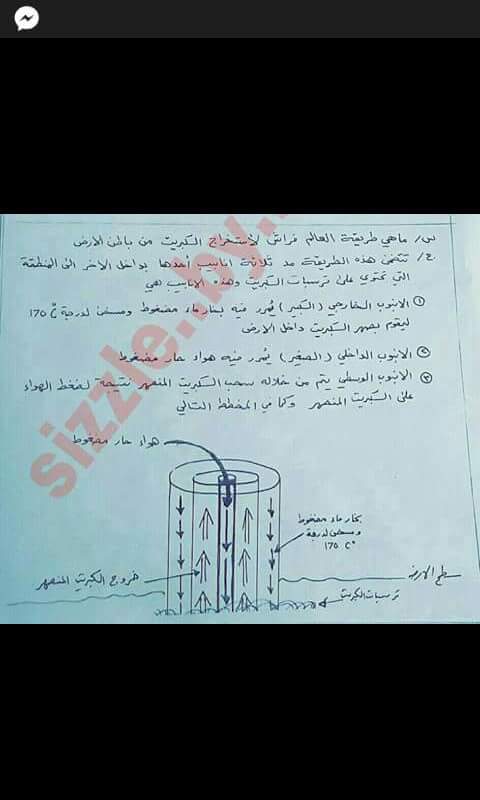 س/ ماهي طريقة العالم فراش لاستخراج الكبريت من باطن الارض
ج/ تتضمن هذه الطريقة مد ثلاثة انابيب أحدها بداخل الاخر الى المنطقة
التي تحتوي على ترسبات الكبريت وهذه الانابيب هي
① الانبوب الخارجي (الكبير) يُمرر فيه بخار ماء مضغوط ومسخن لدرجة 170 C°
ليقوم بصهر الكبريت داخل الارض
② الانبوب الداخلي (الصغير) يُمرر فيه هواء حار مضغوط
③ الانبوب الوسطي يتم من خلاله سحب الكبريت المنصهر نتيجة لضغط الهواء
على الكبريت المنصهر وكما في المخطط التالي
هواء حار مضغوط
بخار ماء مضغوط
ومسخن لدرجة
170 C°
خروج الكبريت المنصهر
سطح الارض
ترسبات الكبريت
sizzle..by.